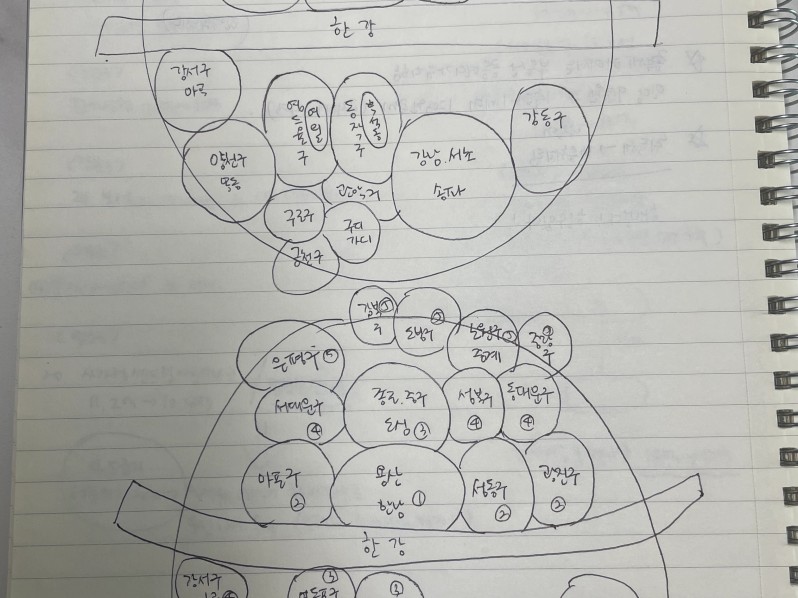 한강
강서구
마곡
영등포구
여의도
동작구
흑석동
강동구
양천구
목동
강남.서초
송파
관악구
구로구
구디
가디
금천구
강북구 ⑤
도봉구 ⑤
노원구 ⑤
중계
중랑구 ⑤
은평구 ⑤
종로.중구
도심 ③
성북구
④
동대문구
④
서대문구
④
마포구
②
용산
한남 ①
성동구
②
광진구
②
한강
강서구
④
영등포구
③
③